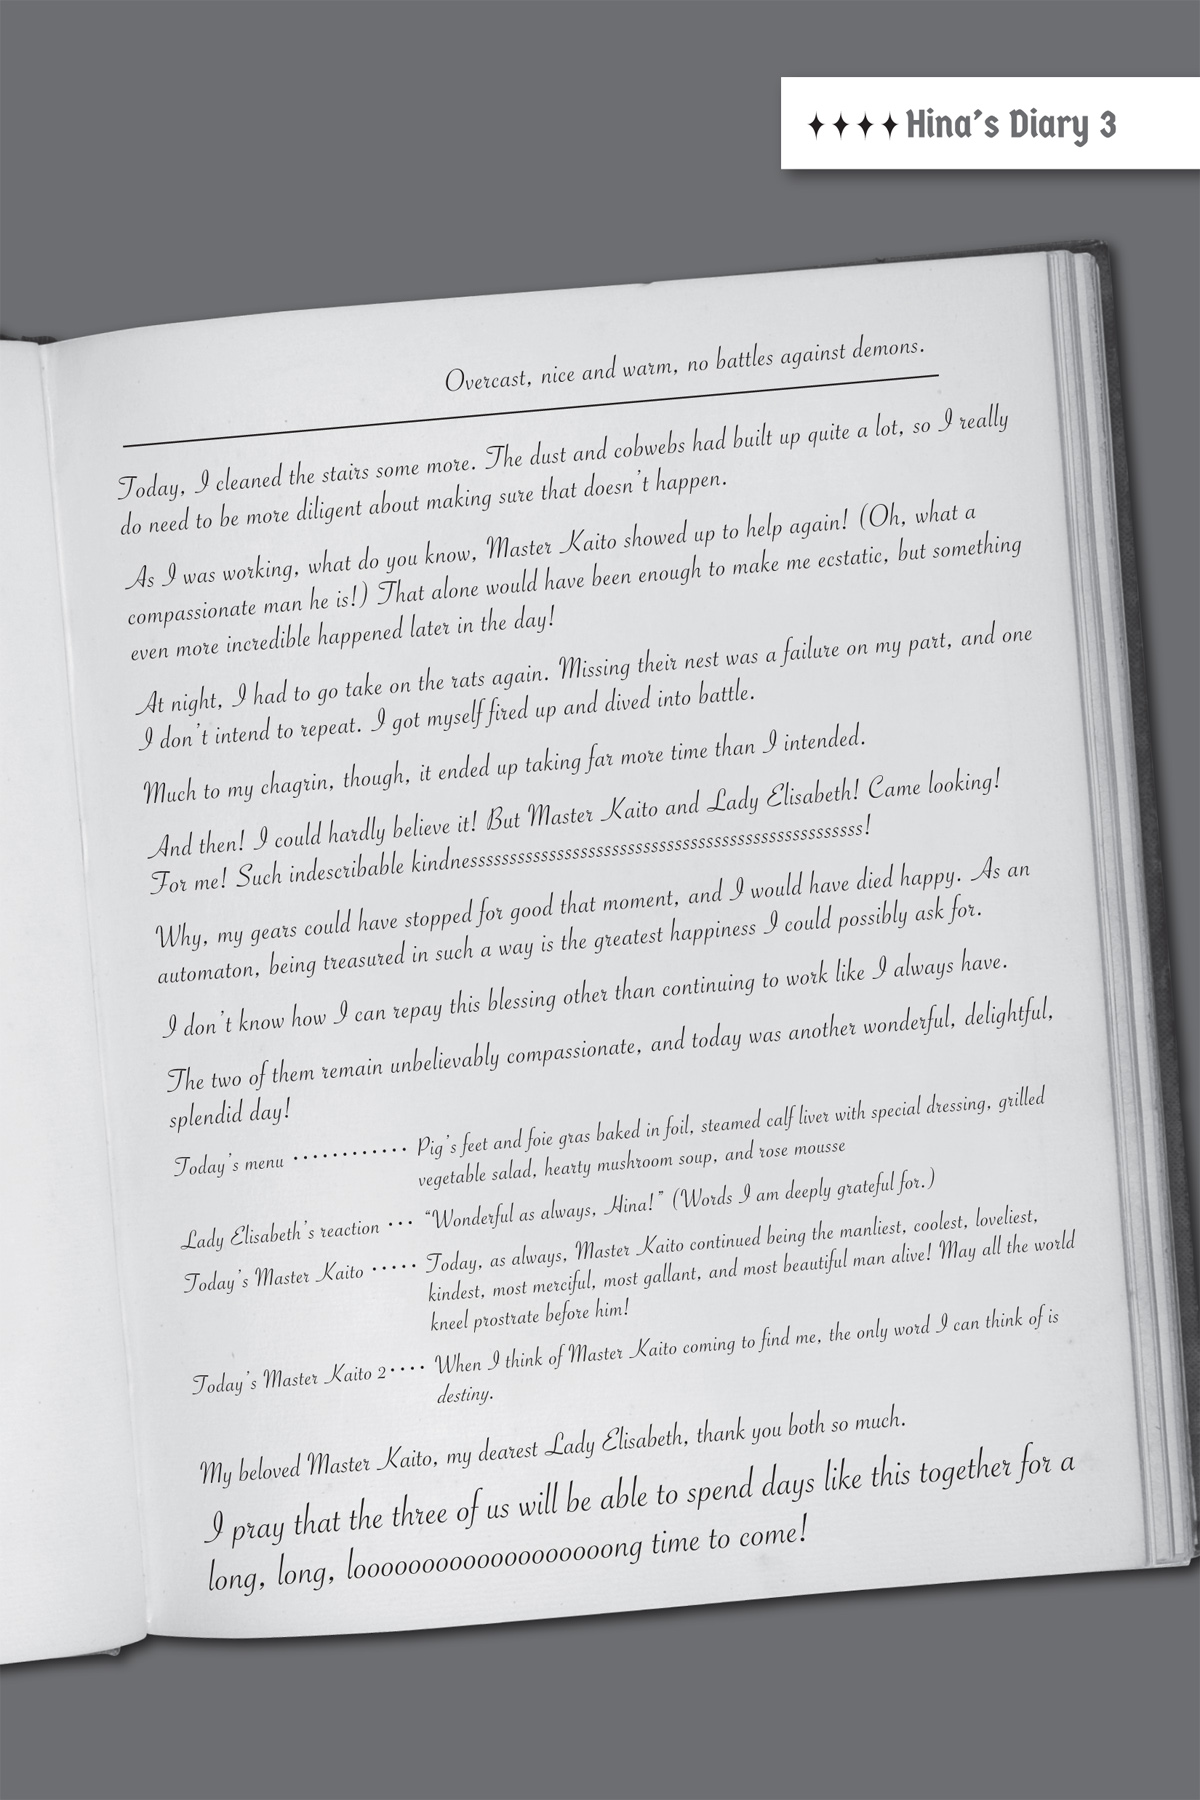 ✦✦✦✦ Hina's Diary 3
Overcast, nice and warm, no battles against demons.
Today, I cleaned the stairs some more. The dust and cobwebs had built up quite a lot, so I really
do need to be more diligent about making sure that doesn't happen.
As I was working, what do you know, Master Kaito showed up to help again! (Oh, what a
compassionate man he is!) That alone would have been enough to make me ecstatic, but something
even more incredible happened later in the day!
At night, I had to go take on the rats again. Missing their nest was a failure on my part, and one
I don't intend to repeat. I got myself fired up and dived into battle.
Much to my chagrin, though, it ended up taking far more time than I intended.
And then! I could hardly believe it! But Master Kaito and Lady Elisabeth! Came looking!
For me! Such indescribable kindnessssssssssssssssssssssssssssssssssssssssssssssssssss!
Why, my gears could have stopped for good that moment, and I would have died happy. As an
automaton, being treasured in such a way is the greatest happiness I could possibly ask for.
I don't know how I can repay this blessing other than continuing to work like I always have.
The two of them remain unbelievably compassionate, and today was another wonderful, delightful,
splendid day!
Today's menu ············ Pig's feet and foie gras baked in foil, steamed calf liver with special dressing, grilled
vegetable salad, hearty mushroom soup, and rose mousse
Lady Elisabeth's reaction ··· "Wonderful as always, Hina!" (Words I am deeply grateful for.)
Today's Master Kaito ····· Today, as always, Master Kaito continued being the manliest, coolest, loveliest,
kindest, most merciful, most gallant, and most beautiful man alive! May all the world
kneel prostrate before him!
Today's Master Kaito 2 ···· When I think of Master Kaito coming to find me, the only word I can think of is
destiny.
My beloved Master Kaito, my dearest Lady Elisabeth, thank you both so much.
I pray that the three of us will be able to spend days like this together for a
long, long, looooooooooooooooooong time to come!